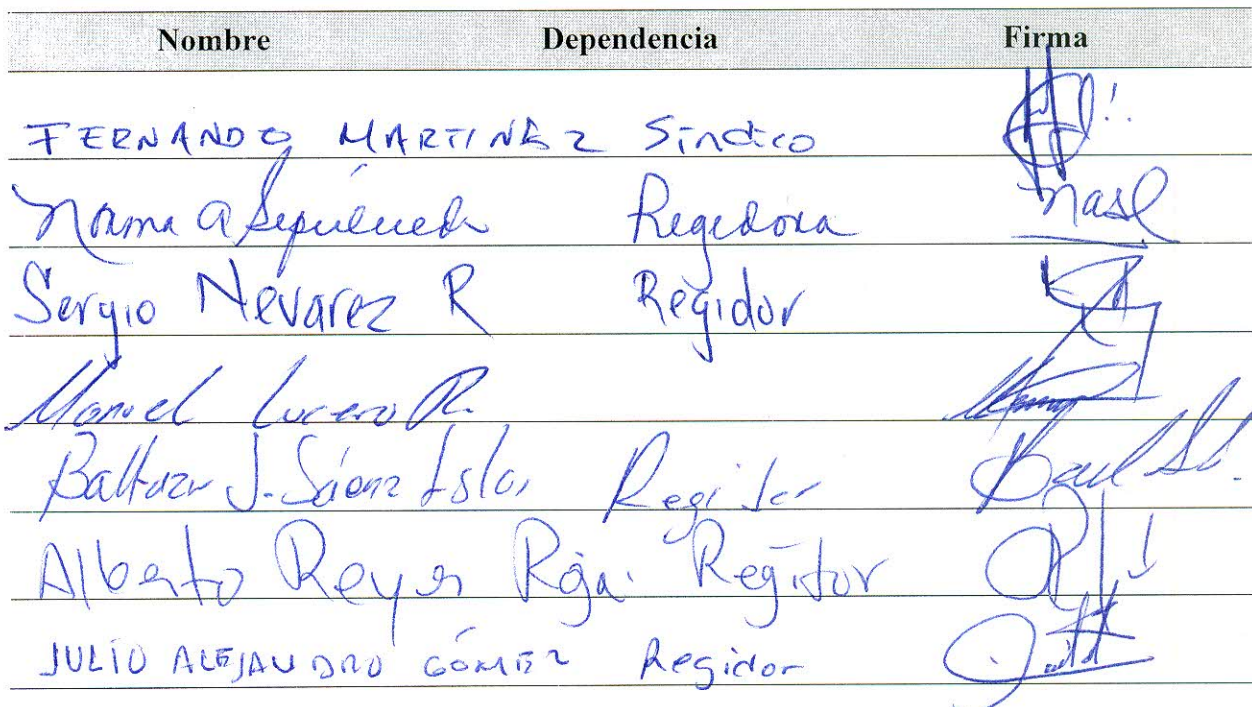 Nombre Dependencia Firma
FERNANDO MARTINEZ Síndico
Norma A Sepúlveda Regidora
Sergio Nevarez R Regidor
Manuel Lucero R.
Baltazar J. Sáenz Islas Regidor
Alberto Reyes Rojas Regidor
JULIO ALEJANDRO GÓMEZ Regidor